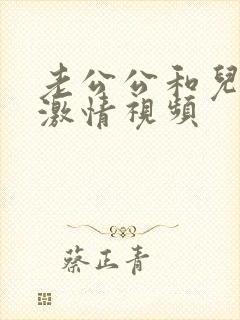 老公公和兒
激情視頻
蔡正青